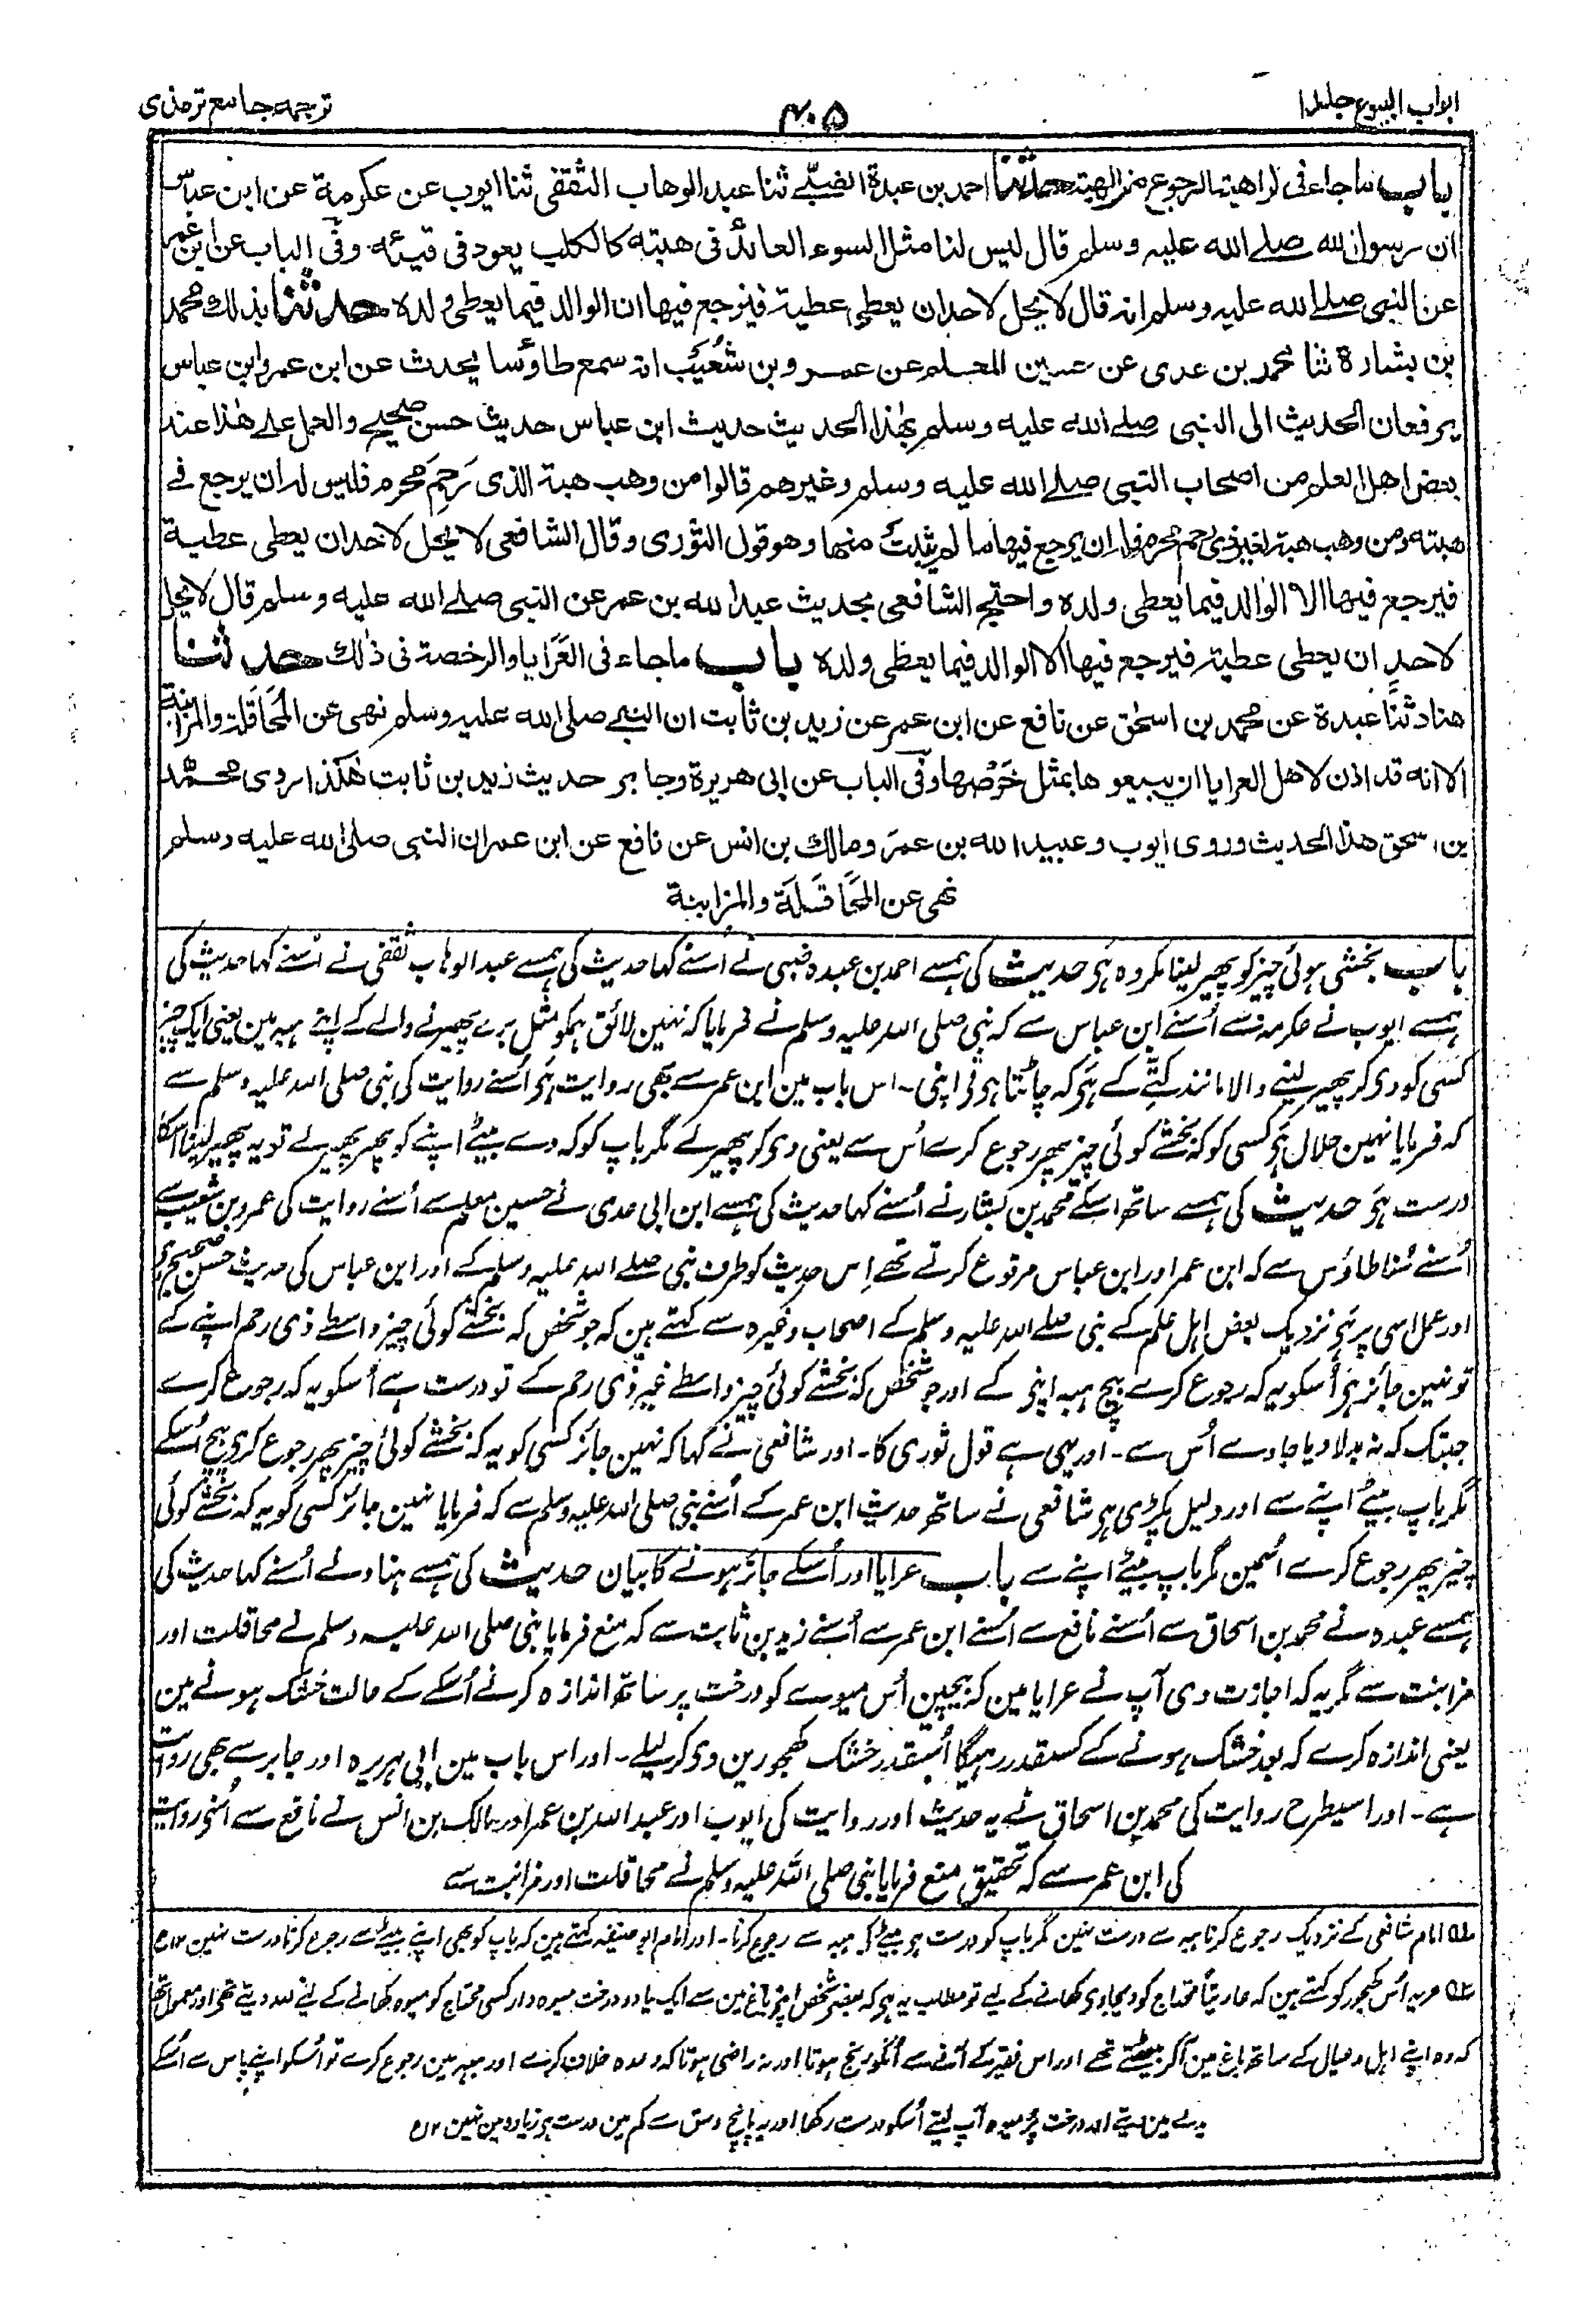 ابواب البیوع جلد ا
۴۰۵
ترجمہ جامع ترمذی
باب ما جاء فی کراهیة الرجوع من الهبة حدثنا احمد بن عبدة الضبّی ثنا عبد الوهاب الثقفی ثنا ایوب عن عکرمة عن ابن عباس
ان رسول الله صلے الله علیه وسلم قال لیس لنا مثل السوء العائد فی هبته کالکلب یعود فی قیئه وفی الباب عن ابن عمر
عن النبی صلے الله علیه وسلم انه قال لا یحل لاحد ان یعطی عطیة فیرجع فیها الا الوالد فیما یعطی ولده حدثنا بذلك محمد
بن بشارة ثنا محمد بن عدی عن حسین المعلم عن عمرو بن شعیب انه سمع طاؤسا یحدث عن ابن عمر وابن عباس
یرفعان الحدیث الی النبی صلے الله علیه وسلم بهٰذا الحدیث حدیث ابن عباس حدیث حسن صحیح والعمل علے هٰذا عند
بعض اهل العلم من اصحاب النبی صلے الله علیه وسلم وغیرهم قالوا من وهب هبة الذی رَحِمَ محرم فلیس له ان یرجع فی
هبته ومن وهب هبة لغیر ذی رحم محرم فله ان یرجع فیها ما لم یثبت منها وهو قول الثوری وقال الشافعی لا یحل لاحد ان یعطی عطیة
فیرجع فیها الا الوالد فیما یعطی ولده واحتج الشافعی بحدیث عبد الله بن عمر عن النبی صلے الله علیه وسلم قال لا یحل
لاحدٍ ان یعطی عطیة فیرجع فیها الا الوالد فیما یعطی ولده باب ما جاء فی العَرَایا والرخصة فی ذٰلك حدثنا
هناد ثنا عبدة عن محمد بن اسحٰق عن نافع عن ابن عمر عن زید بن ثابت ان النبی صلی الله علیه وسلم نهی عن المُحَاقَلة والمزابنة
الا انه قد اذن لاهل العرایا ان یبیعوها بمثل خَرْصها وفی الباب عن ابی هریرة وجابر حدیث زید بن ثابت هٰکذا روی محمّد
بن اسحق هذا الحدیث وروی ایوب وعبید الله بن عمر ومالك بن انس عن نافع عن ابن عمر ان النبی صلی الله علیه وسلم
نهی عن المحَاقَلَة والمزابنة
باب بخشی ہوئی چیز کو پھیر لینا مکروہ ہی حدیث کی ہمسے احمد بن عبدہ ضبی نے اُسنے کہا حدیث کی ہمسے عبد الوہاب ثقفی نے اُسنے کہا حدیث کی
ہمسے ایوب نے عکرمہ سے اُسنے ابن عباس سے کہ نبی صلی اللہ علیہ وسلم نے فرمایا کہ نہین لائق ہمکو مثل برے پھیرنے والے کے اپنے ہبہ مین یعنی ایک چیز
کسی کو دی کر پھیر لینے والا مانند کتّے کے ہی کہ چاٹتا ہو قی اپنی ۔ اس باب مین ابن عمر سے بھی روایت ہی اُسنے روایت کی نبی صلی اللہ علیہ وسلم سے
کہ فرمایا نہین حلال ہی کسی کو کہ بخشے کوئی چیز پھر رجوع کرے اُس سے یعنی دی کر پھیر لے مگر باپ کو کہ دے بیٹے اپنے کو پھر پھیر لے تو یہ پھیر لینا اسکا
درست ہی حدیث کی ہمسے ساتھ اسکے محمد بن بشار نے اُسنے کہا حدیث کی ہمسے ابن ابی عدی نے حسین معلم سے اُسنے روایت کی عمرو بن شعیب سے
اُسنے سُنا طاؤس سے کہ ابن عمر اور ابن عباس مرفوع کرتے تھے اِس حدیث کو طرف نبی صلے اللہ علیہ وسلم کے اور ابن عباس کی حدیث حسن صحیح ہی
اور عمل اسی پر ہی نزدیک بعض اہل علم کے نبی صلے اللہ علیہ وسلم کے اصحاب وغیرہ سے کہتے ہین کہ جو شخص کہ بخشے کوئی چیز واسطے ذی رحم اپنے کے
تو نہین جائز ہی اُسکو یہ کہ رجوع کرے بیچ ہبہ اپنی کے اور جو شخص کہ بخشے کوئی چیز واسطے غیر ذی رحم کے تو درست ہے اُسکو یہ کہ رجوع کرے
جبتک کہ نہ بدلا دیا جاوے اُس سے ۔ اور یہی ہے قول ثوری کا ۔ اور شافعی نے کہا کہ نہین جائز کسی کو یہ کہ بخشے کوئی چیز پھر رجوع کری بیچ اُسکے
مگر باپ بیٹے اپنے سے اور دلیل پکڑی ہر شافعی نے ساتھ حدیث ابن عمر کے اُسنے نبی صلی اللہ علیہ وسلم سے کہ فرمایا نہین جائز کسی کو یہ کہ بخشے کوئی
چیز پھر رجوع کرے اُسمین مگر باپ بیٹے اپنے سے باب عرایا اور اُسکے جائز ہونے کا بیان حدیث کی ہمسے ہناد نے اُسنے کہا حدیث کی
ہمسے عبدہ نے محمد بن اسحاق سے اُسنے نافع سے اُسنے ابن عمر سے اُسنے زید بن ثابت سے کہ منع فرمایا نبی صلی اللہ علیہ وسلم نے محاقلت اور
مزابنت سے مگر یہ کہ اجازت دی آپ نے عرایا مین کہ بیچین اُس میوے کو درخت پر ساتھ اندازہ کرنے اُسکے کے حالت خشک ہونے مین
یعنی اندازہ کرے کہ بعد خشک ہونے کے کسقدر رہیگا اُسیقدر خشک کھجورین دی کر لیلے ۔ اور اس باب مین ابی ہریرہ اور جابر سے بھی روایت
ہے ۔ اور اسیطرح روایت کی محمد بن اسحاق نے یہ حدیث اور روایت کی ایوب اور عبد اللہ بن عمر اور مالک بن انس نے نافع سے اُسنی روایت
کی ابن عمر سے کہ تحقیق منع فرمایا نبی صلی اللہ علیہ وسلم نے محاقلت اور مزابنت سے
۱ امام شافعی کے نزدیک رجوع کرنا ہبہ سے درست نہین مگر باپ کو درست ہو بیٹے کی ہبہ سے رجوع کرنا ۔ اور امام ابو حنیفہ کہتے ہین کہ باپ کو بھی اپنے بیٹے سے رجوع کرنا درست نہین ۱۲
۲ عریہ اُس کھجور کو کہتے ہین کہ عاریتاً محتاج کو دیجاوی کھانے کے لیے تو مطلب یہ ہی کہ بعض شخص اپنے باغ مین سے ایک یا دو درخت میوہ دار کسی محتاج کو میوہ کھانے کے لیے دیتے تھے اور معمول تھا
کہ وہ اپنے اہل و عیال کے ساتھ باغ مین آکر بیٹھتے تھے اور اس فقیر کے آنے سے انکو رنج ہوتا اور نہ راضی ہوتا کہ وعدہ خلاف کرے اور ہبہ مین رجوع کرے تو اُسکو اپنے پاس سے اُسکے
بدلے مین دیتے اور درخت پر میوہ آپ لیتے اُسکو درست رکھا اور یہ پانچ وسق سے کم مین درست ہی زیادہ مین نہین ۱۲